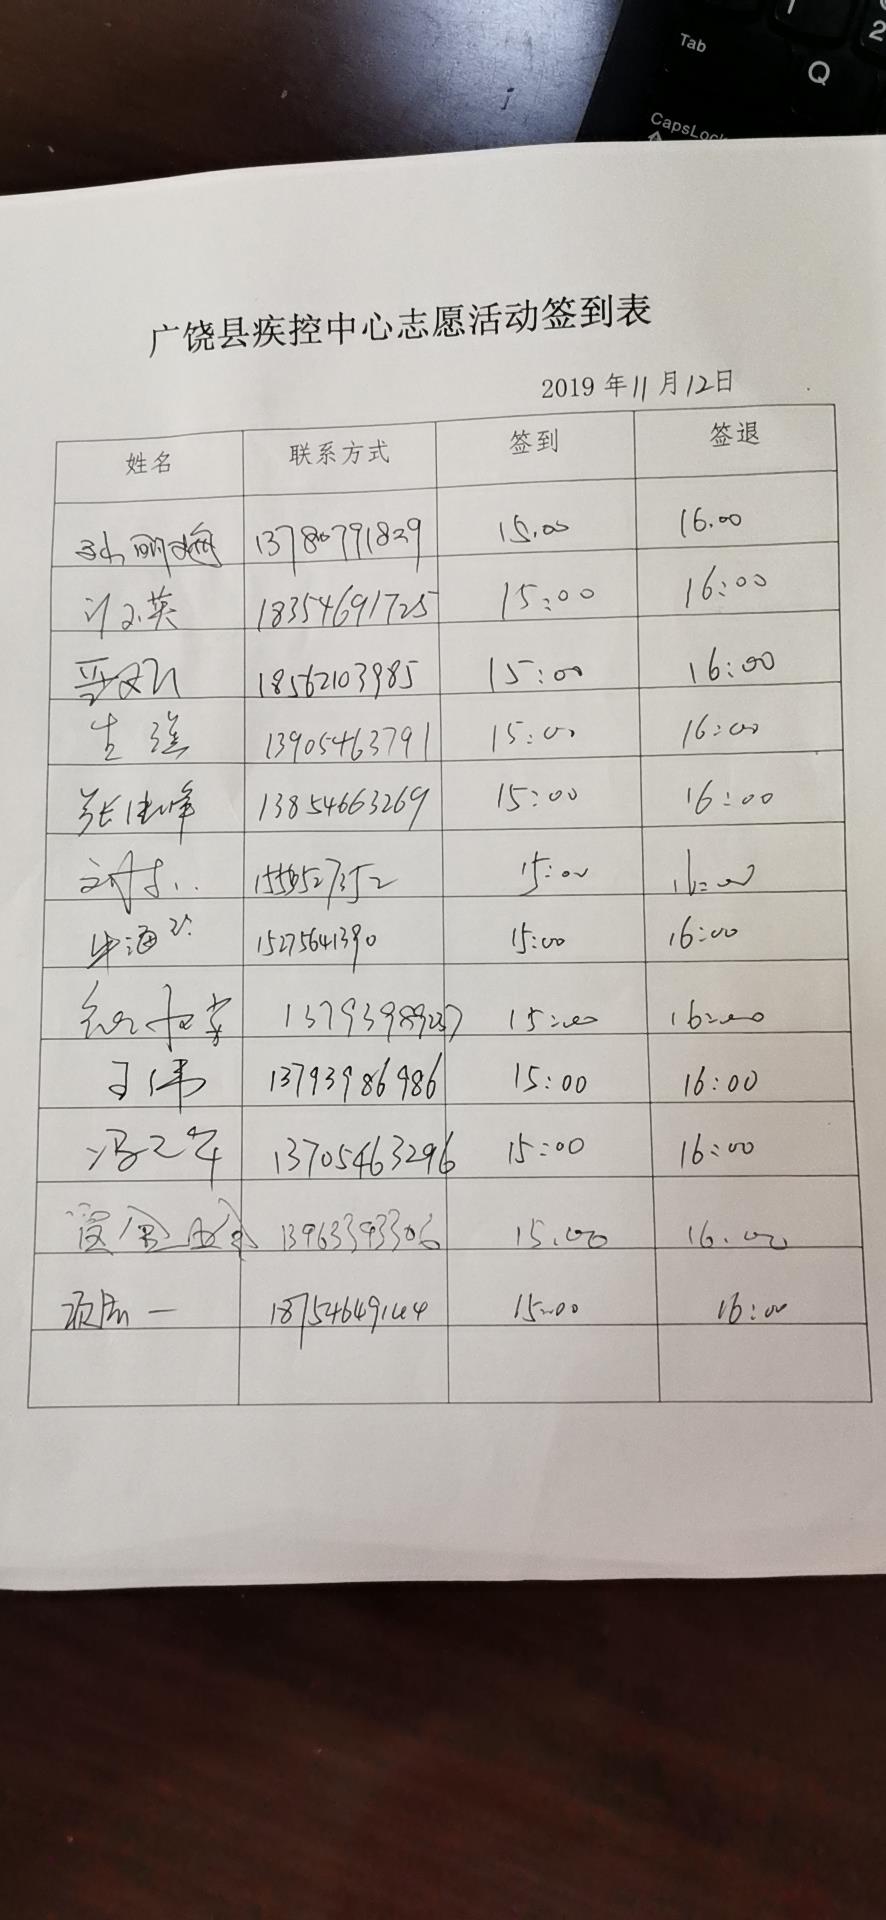 Tab
Q
1
2
CapsLock
广饶县疾控中心志愿活动签到表
2019 年 11 月 12 日
姓名 联系方式 签到 签退
13780791829 15.00 16.00
18354691725 15:00 16:00
18562103985 15:00 16:00
13905463791 15:00 16:00
张 峰 13854663269 15:00 16:00
15:00 16:00
海 15275641390 15:00 16:00
15:00 16:00
王伟 13793986986 15:00 16:00
冯 军 13705463296 15:00 16:00
13963393306 15.00 16.00
一 15:00 16:00